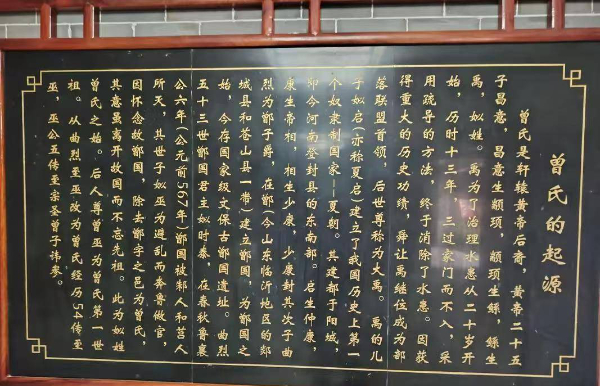 曾氏的起源
曾氏是轩辕黄帝后裔，黄帝二十五
子昌意，昌意生颛顼，颛顼生鲧，鲧生
禹，姒姓。禹为了治理水患从二十岁开
始，历时十三年，三过家门而不入，采
用疏导的方法，终于消除了水患。因获
得重大的历史功绩，舜让禹继位成为部
落联盟首领，后世尊称为大禹。禹的儿
子姒启(亦称夏启)建立了我国历史上第一
个奴隶制国家—夏朝。其建都于阳城，
即今河南登封县的东南部。启生仲康，
康生帝相，相生少康，少康封其次子曲
烈为鄫子爵，在鄫(今山东临沂地区的郯
城县和苍山县一带)建立鄫国，为鄫国之
始，今存国家级文保古鄫国遗址。曲烈
五十三世鄫国君主姒时泰，在春秋鲁襄
公六年(公元前567年)鄫国被邾人和莒人
所灭，其世子姒巫为避乱而奔鲁做官，
因怀念故鄫国，除去鄫字之邑为曾氏，
其意虽离开故国而不忘先祖。此为姒姓
曾氏之始。后人尊曾巫为曾氏第一世
祖。从曲烈至巫改为曾氏经历54传至
巫，巫公五传至宗圣曾子讳参。